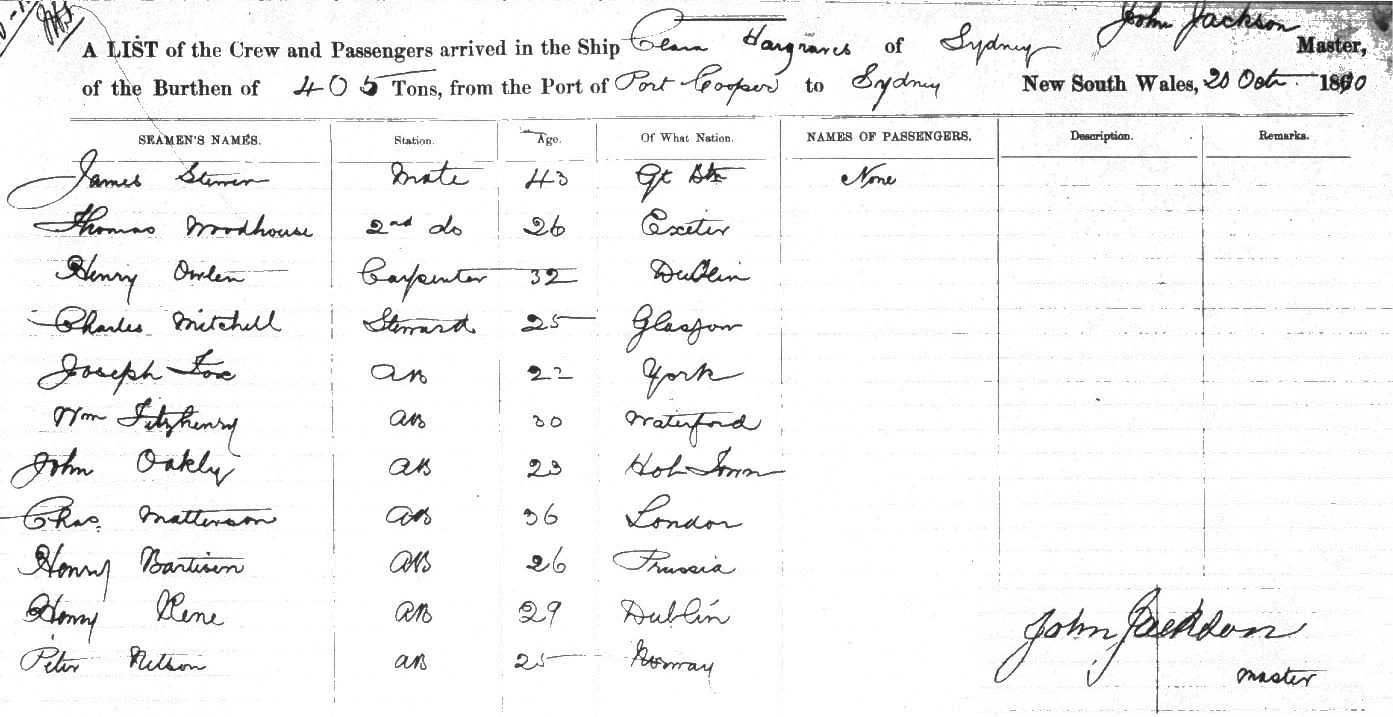 A LIST of the Crew and Passengers arrived in the Ship Clara Hargraves of Sydney John Jackson Master,
of the Burthen of 405 Tons, from the Port of Port Cooper to Sydney New South Wales, 20 Octr 1870
SEAMEN'S NAMES. Station. Age. Of What Nation. NAMES OF PASSENGERS. Description. Remarks.
James Mate 43 Gt None
Thomas Woodhouse 2nd do 26 Exeter
Henry Carpenter 32 Dublin
Charles Mitchell Steward 25 Glasgow
Joseph Fox AB 22 York
Wm Fitzhenry AB 30 Waterford
John Oakly AB 23 Hob Town
Chas. Matterson AB 36 London
Henry Bartisen AB 26 Prussia
Henry AB 29 Dublin
Peter Nelson AB 25 Norway
John Jackson
Master